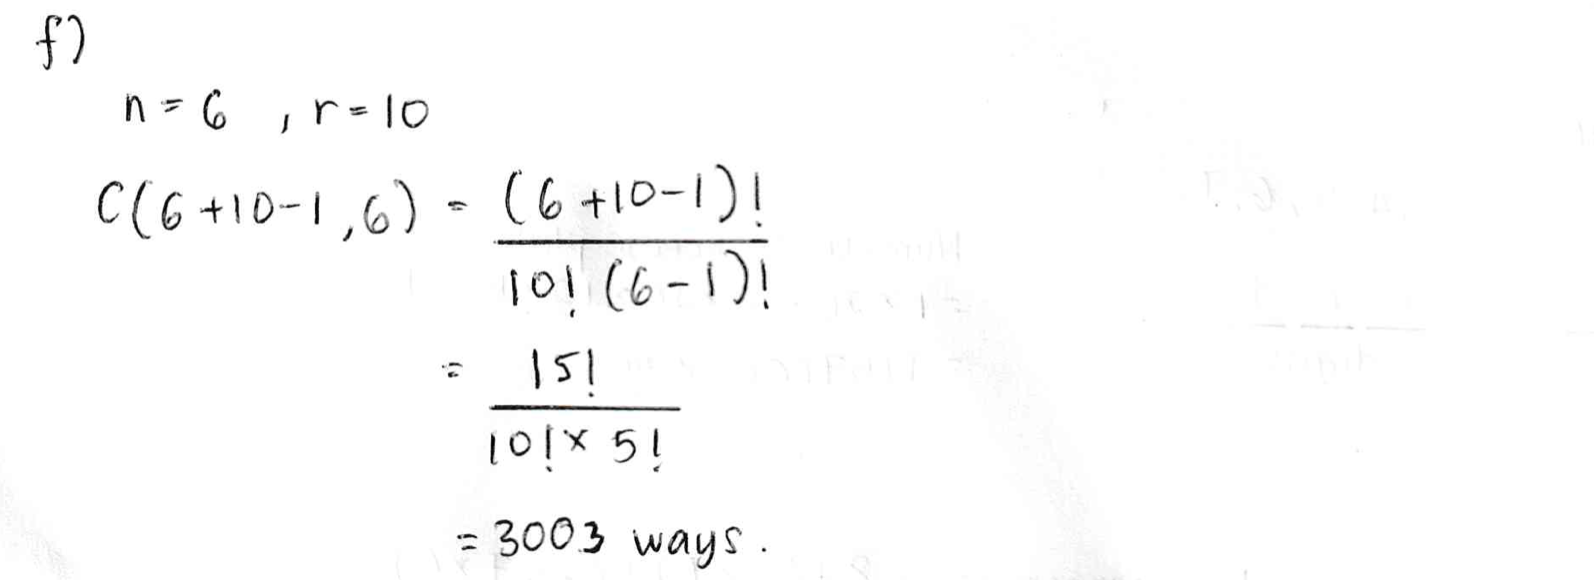 f)
n = 6 , r = 10
C(6+10-1,6) = (6+10-1)!
10! (6-1)!
= 15!
10! × 5!
= 3003 ways.